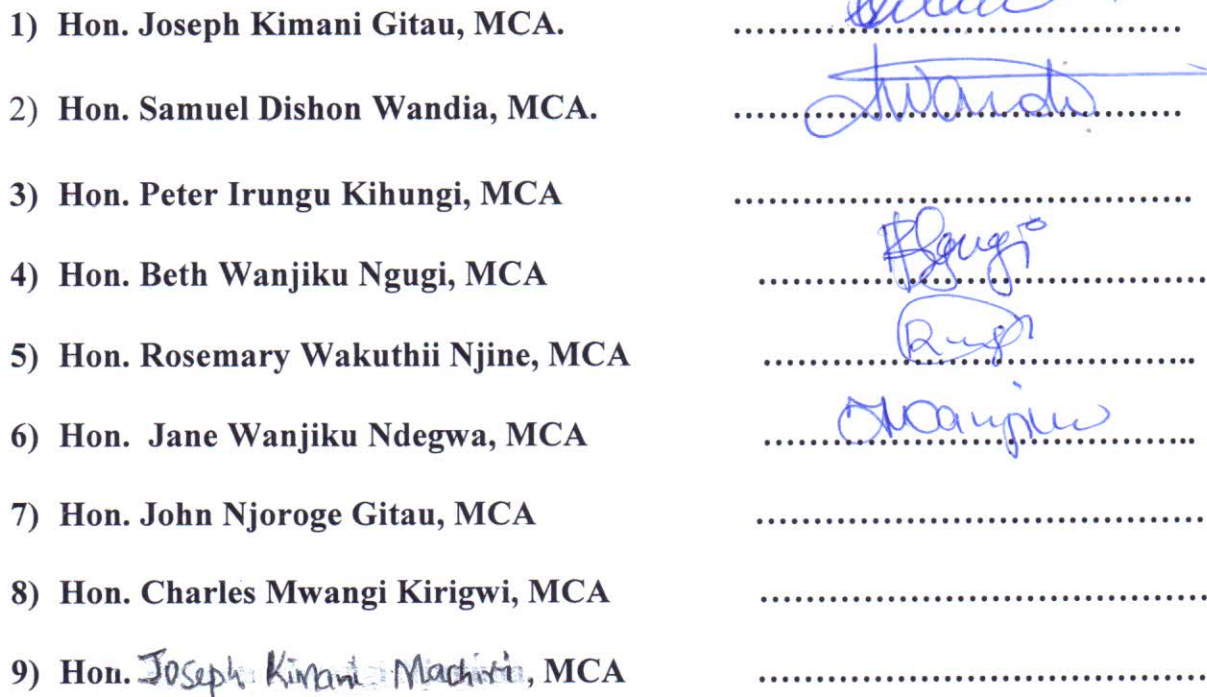 1) Hon. Joseph Kimani Gitau, MCA. ......................................
2) Hon. Samuel Dishon Wandia, MCA. ......................................
3) Hon. Peter Irungu Kihungi, MCA ......................................
4) Hon. Beth Wanjiku Ngugi, MCA ......................................
5) Hon. Rosemary Wakuthii Njine, MCA ......................................
6) Hon. Jane Wanjiku Ndegwa, MCA ......................................
7) Hon. John Njoroge Gitau, MCA ......................................
8) Hon. Charles Mwangi Kirigwi, MCA ......................................
9) Hon. Joseph Kimani , MCA ......................................